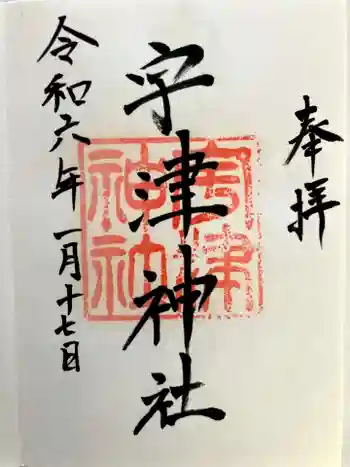 奉拝
宇津神社
令和六年一月十七日
宇津
神社